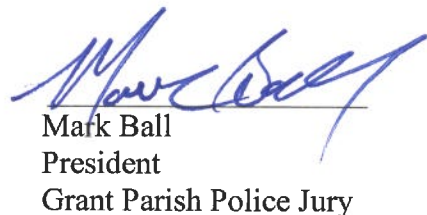 Mark Ball
Mark Ball
President
Grant Parish Police Jury